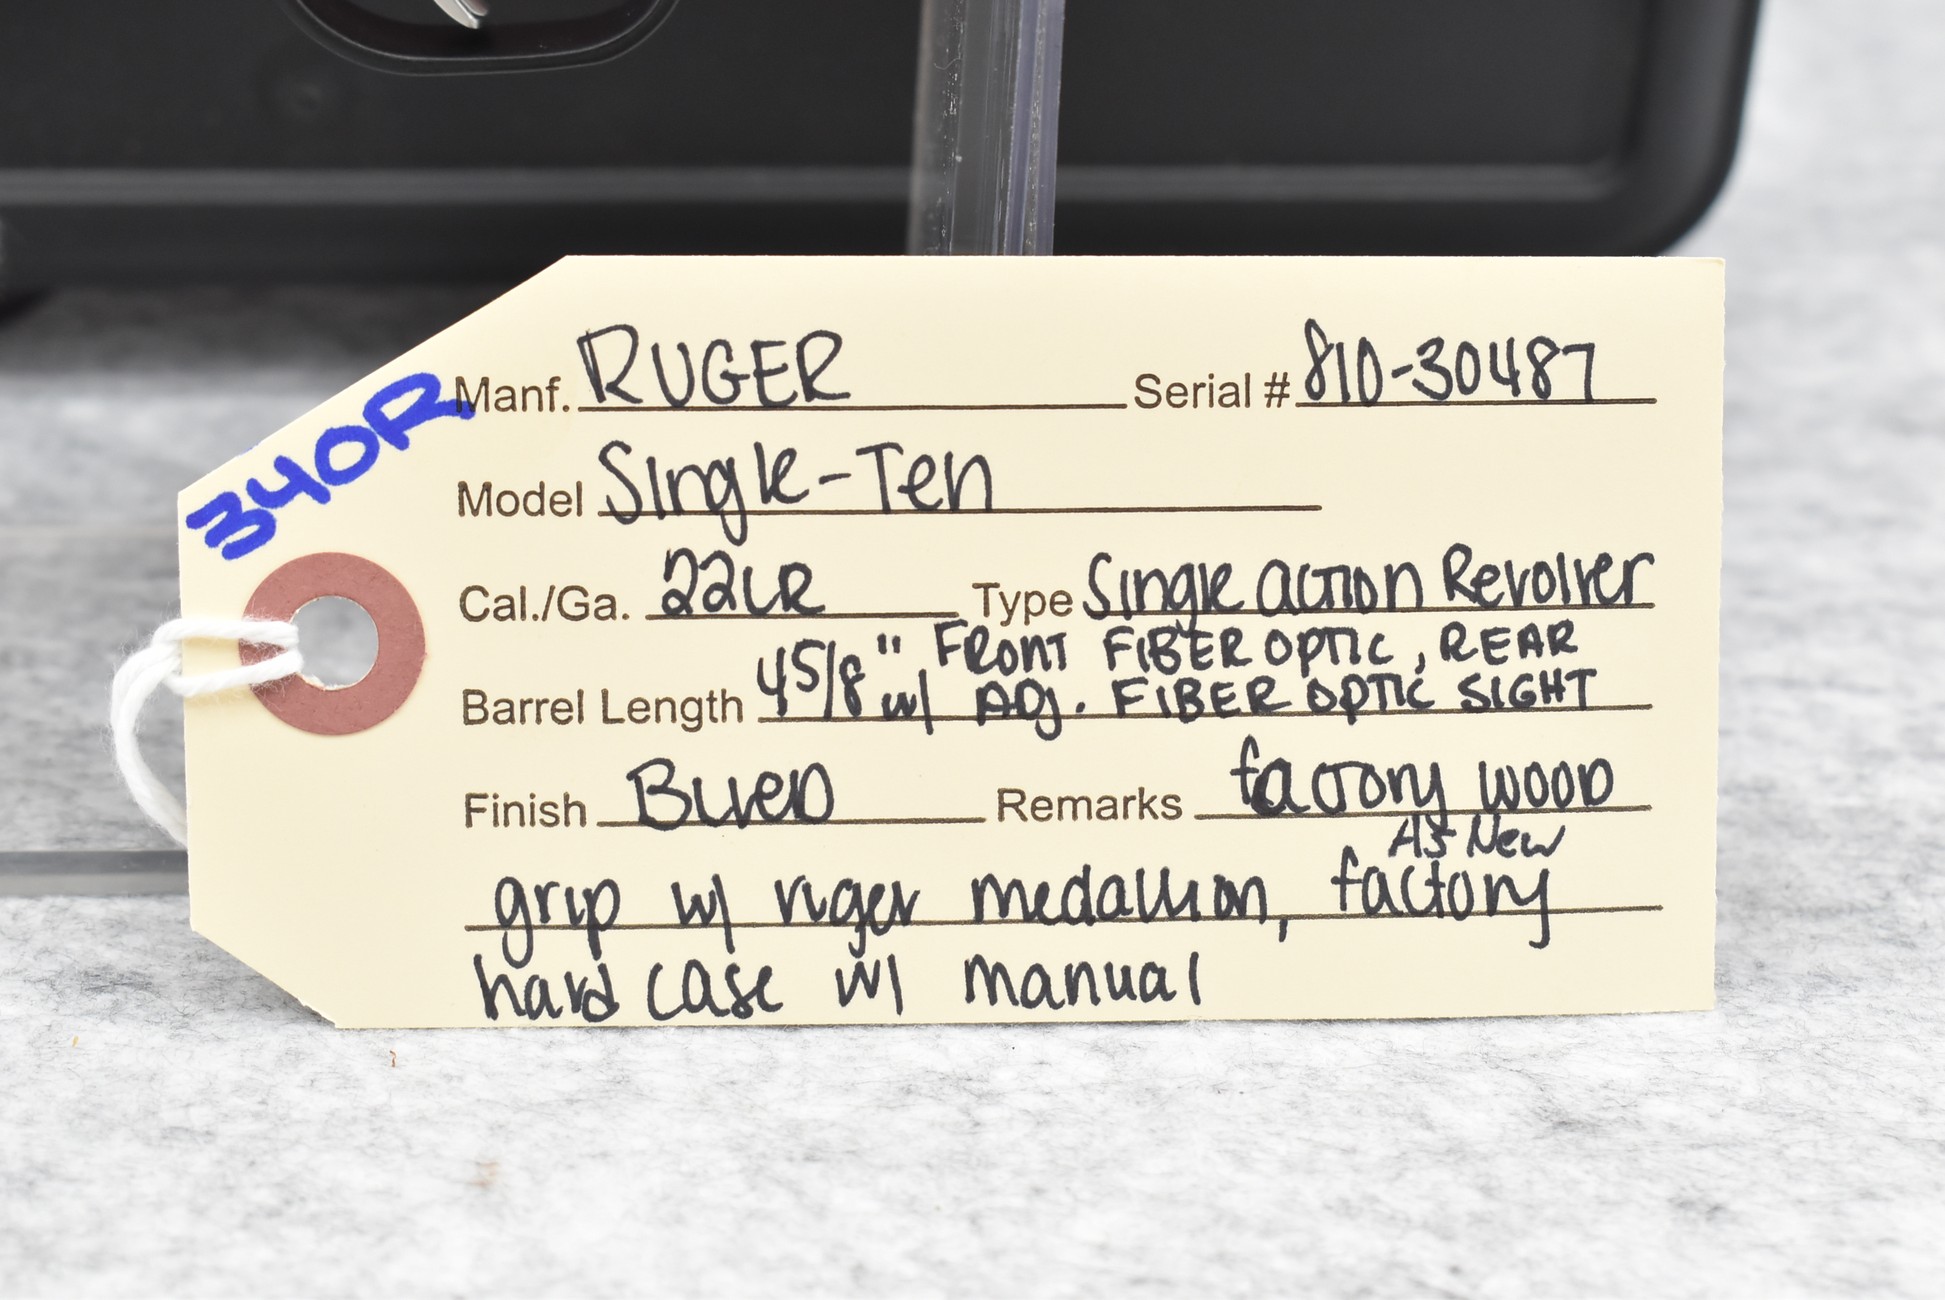 340R
Manf. RUGER Serial # 810-30487
Model Single-Ten
Cal./Ga. 22LR Type Single action Revolver
Barrel Length 45/8" w/ Front FIBER OPTIC, REAR
ADJ. FIBER OPTIC SIGHT
Finish Blued Remarks factory wood
As New
grip w/ ruger medallion, factory
hard case w/ manual